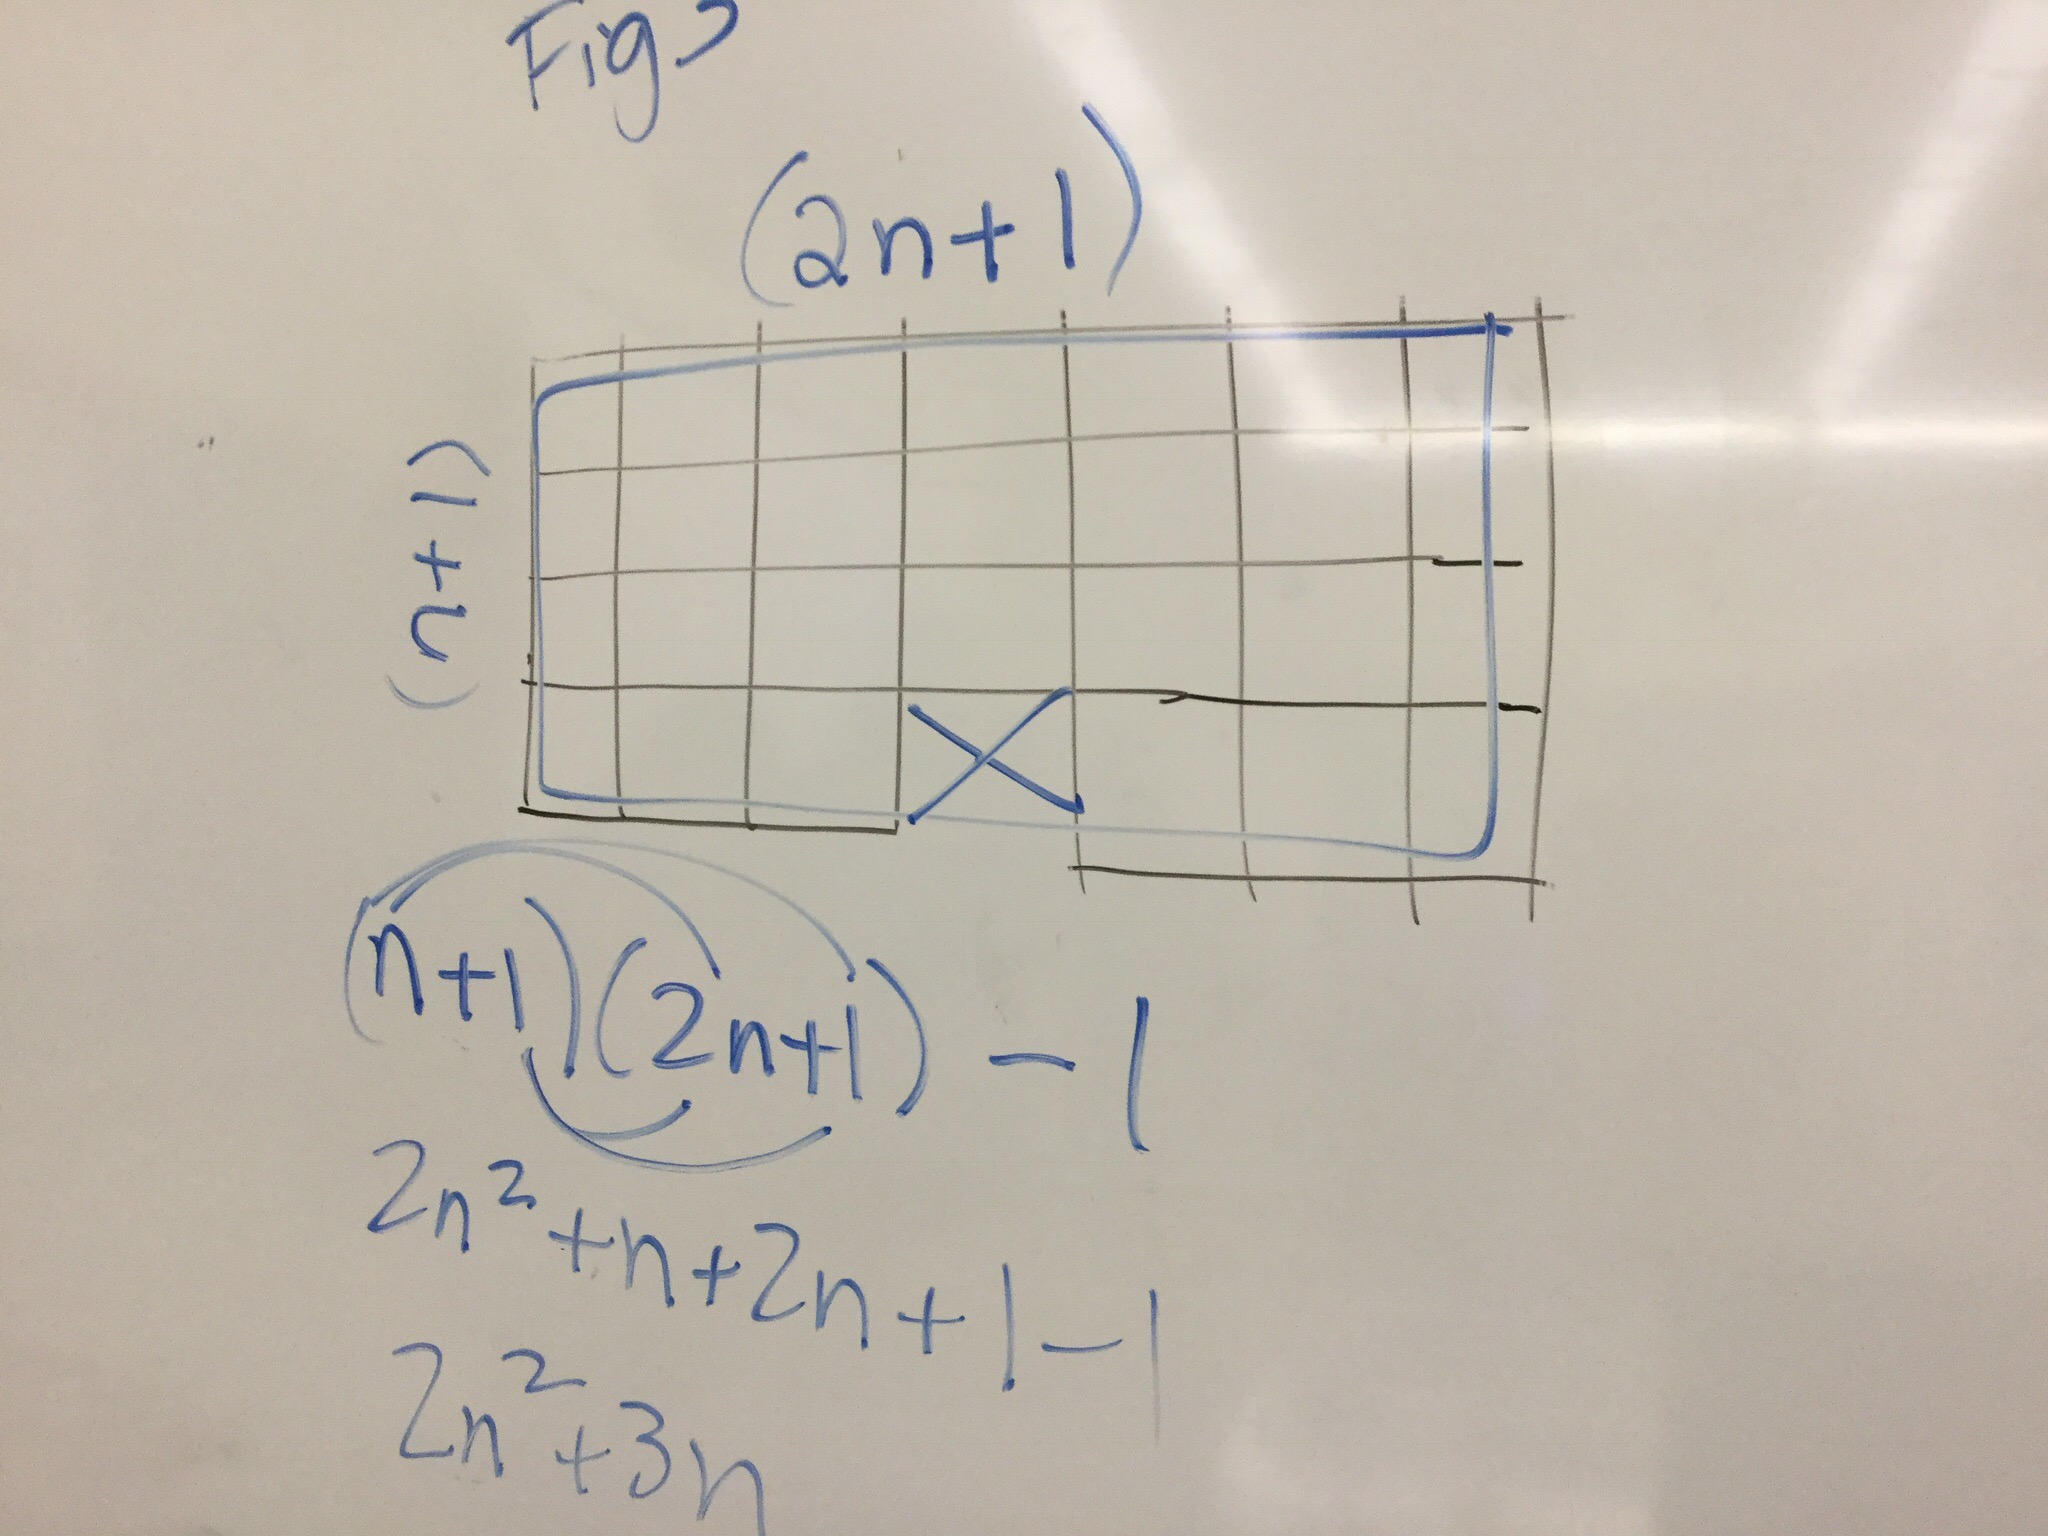 Fig 3
(2n+1)
(n+1)
(n+1)(2n+1) - 1
2n²+n+2n+1-1
2n²+3n